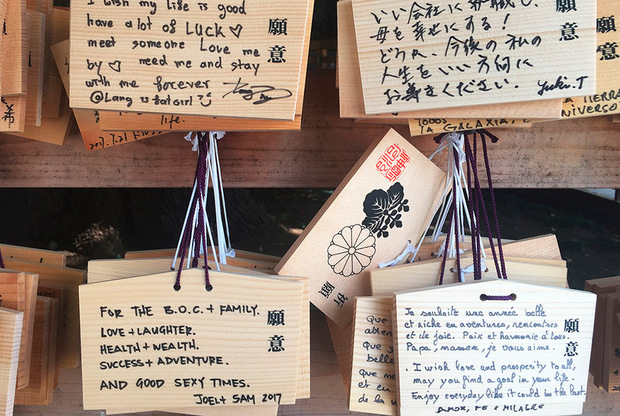 I wish my life is good
have a lot of LUCK♡
meet someone Love me
by♡ need me and stay
with me forever
@Lang is bat girl
願意
いい会社に就職して、
母を幸せにする!
どうか、今後の私の
人生をいい方向に
お導きください。
Yuki.T
願意
意
TIERRA
UNIVERSO
LA GALAXIA
life.
祈願
FOR THE B.O.C. + FAMILY.
LOVE + LAUGHTER.
HEALTH + WEALTH.
SUCCESS + ADVENTURE.
AND GOOD SEXY TIMES.
JOEL + SAM 2017
願意
Que
Que
belle
Que
et
de la
Je souhaite une année belle
et riche en aventures, rencontres
et de joie. Paix et harmonie à tous.
Papa, maman, je vous aime.
I wish love and prosperity to all,
may you find a goal in your life.
Enjoy everyday like it could be the last.
願意